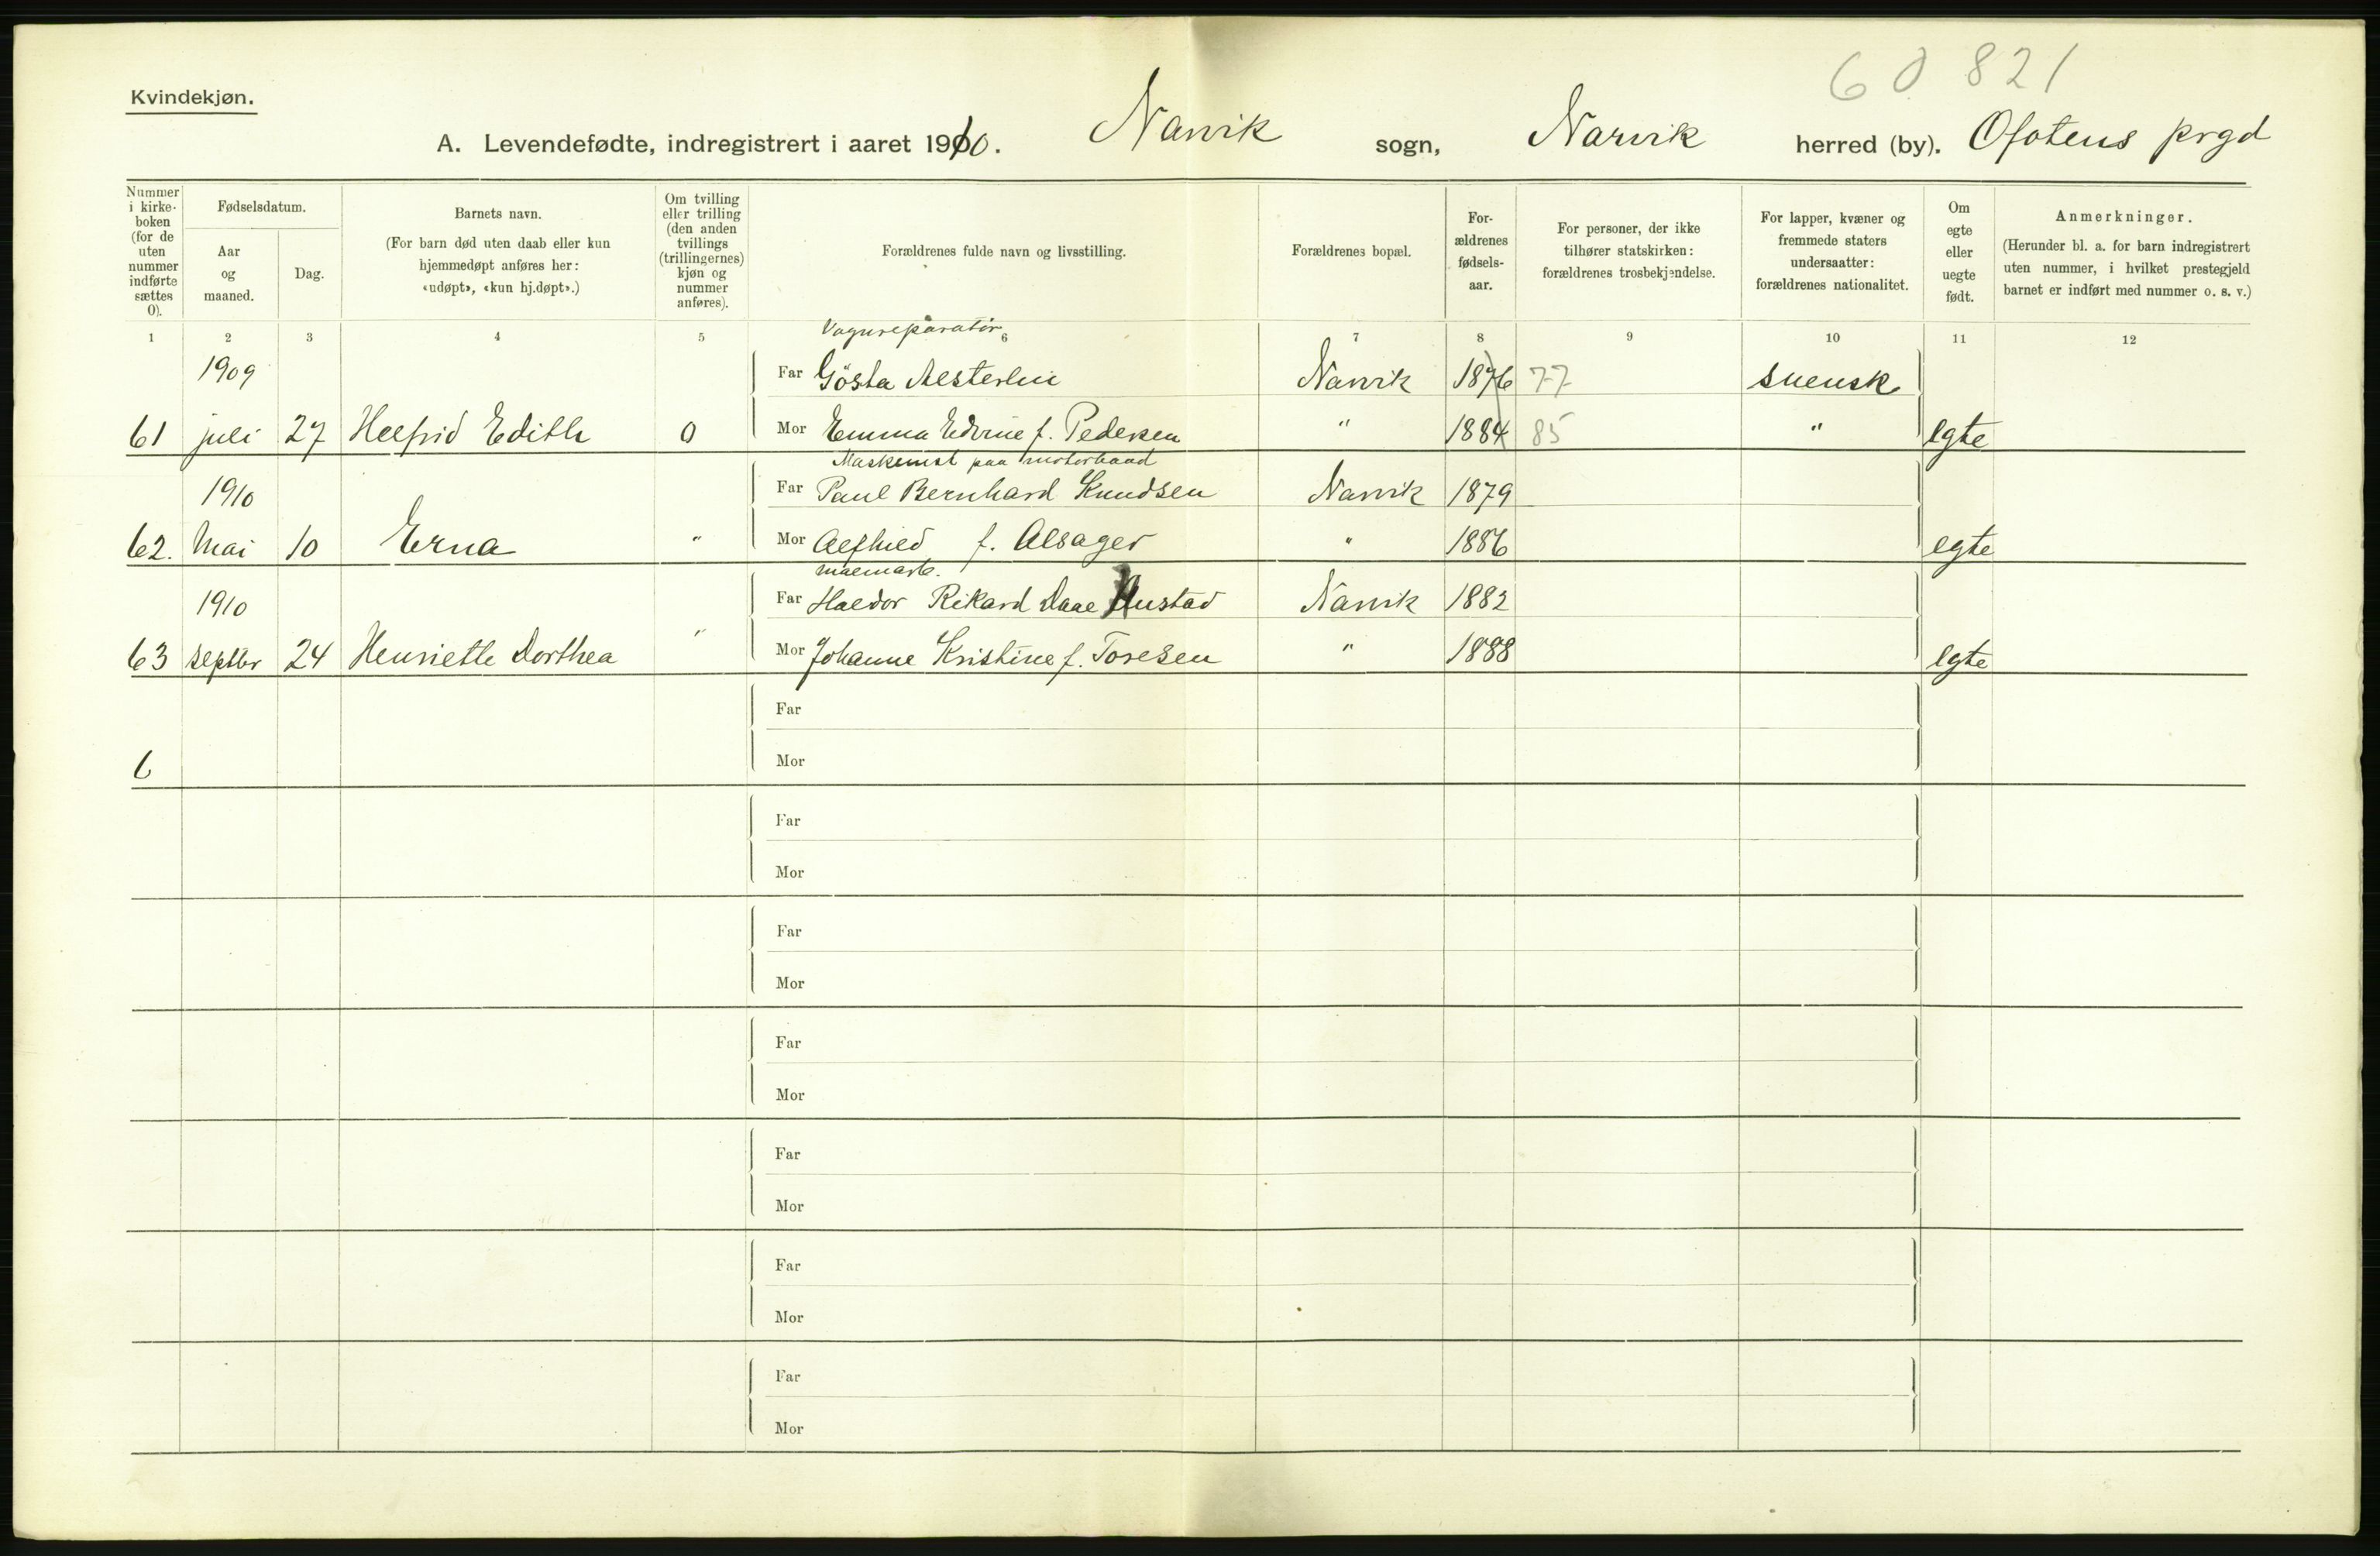 60 821
Kvindekjøn.
A. Levendefødte, indregistrert i aaret 1910. Narvik sogn, Narvik herred (by). Ofotens prgd
Nummer i kirke-boken (for de uten nummer indførte sættes 0).
Fødselsdatum.
Aar og maaned.
Dag.
Barnets navn.
(For barn død uten daab eller kun hjemmedøpt anføres her: «udøpt», «kun hj.døpt».)
Om tvilling eller trilling (den anden tvillings (trillingernes) kjøn og nummer anføres).
Forældrenes fulde navn og livsstilling.
Forældrenes bopæl.
For-ældrenes fødsels-aar.
For personer, der ikke tilhører statskirken: forældrenes trosbekjendelse.
For lapper, kvæner og fremmede staters undersaatter: forældrenes nationalitet.
Om egte eller uegte født.
Anmerkninger.
(Herunder bl. a. for barn indregistrert uten nummer, i hvilket prestegjeld barnet er indført med nummer o. s. v.)
1 2 3 4 5 6 7 8 9 10 11 12
Vognreparatør
1909 Far Gösta Westerlin Narvik 1876 77 svensk
61 juli 27 Helfrid Edith 0 Mor Emma Edvine f. Pedersen " 1884 85 " egte
Maskinist paa motorbaad
1910 Far Paul Bernhard Knudsen Narvik 1879
62. Mai 10 Erna " Mor Alfhild f. Alsager " 1886 egte
malmarb.
1910 Far Haldor Rikard Daae Austad Narvik 1882
63 septbr 24 Henriette Dorthea " Mor Johanne Kristine f. Toresen " 1888 egte
Far
6 Mor
Far
Mor
Far
Mor
Far
Mor
Far
Mor
Far
Mor
Far
Mor